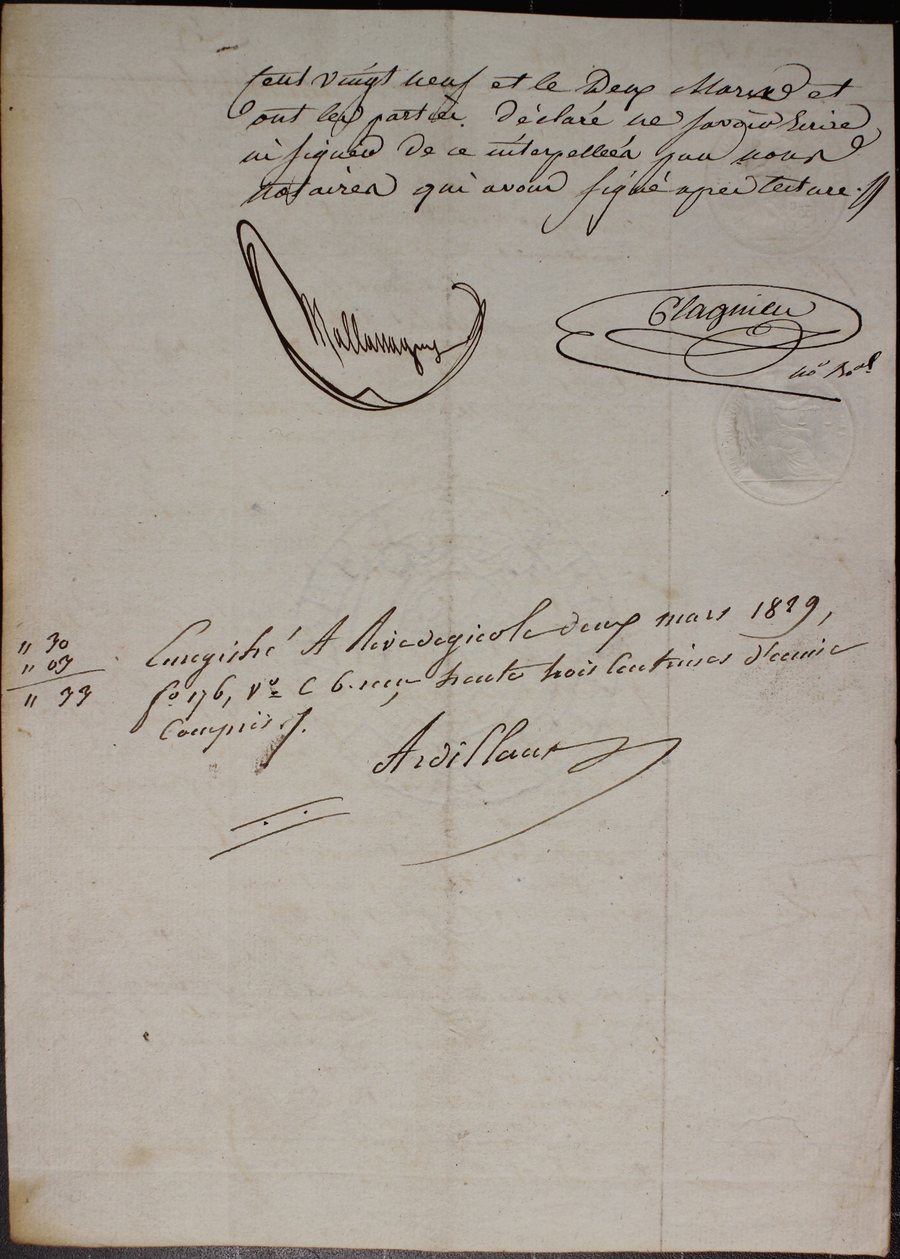 Cent vingt neuf et le Deux Mars et
ont les parties déclaré ne savoir Ecrire
ni signer de ce interpellées par nous
notaires qui avons signé après lecture.
Mallassagny
Plagnieu
no.re Roal
" 30
" 03
" 33
Enregistré A Rivedegier le deux mars 1829,
fo. 176, vo. C 6. reçu trente trois Centimes d'ecime
Compris.
Ardillaux